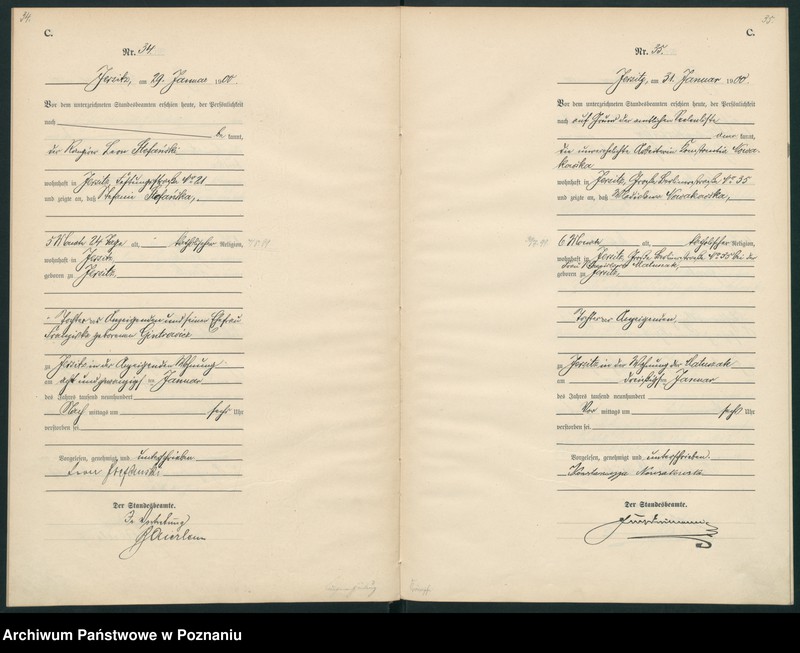 34.
C.
Nr. 34.
Jersitz, am 29. Januar 1900
Vor dem unterzeichneten Standesbeamten erschien heute, der Persönlichkeit
nach
be kannt,
der Leon Stefański
wohnhaft in Jersitz, Nº 21
und zeigte an, daß Stefania Stefańska,
5 Monate 24 Tage alt, katholischer Religion,
wohnhaft in Jersitz
geboren zu Jersitz
Tochter des Anzeigenden und seiner Ehefrau
geborenen
zu Jersitz in der Anzeigenden Wohnung
am acht und zwanzigsten Januar
des Jahres tausend neunhundert
Nach mittags um sechs Uhr
verstorben sei.
Vorgelesen, genehmigt und unterschrieben
Leon Stefański
Der Standesbeamte.
In Vertretung
35.
C.
Nr. 35.
Jersitz, am 31. Januar 1900
Vor dem unterzeichneten Standesbeamten erschien heute, der Persönlichkeit
nach auf Grund der amtlichen
kannt,
die unverehelichte Arbeiterin Konstantia Nowa-
kowska
wohnhaft in Jersitz, Große Berlinerstraße Nº 35
und zeigte an, daß Nowakowska,
6 Monate alt, katholischer Religion,
wohnhaft in Jersitz, Große Berlinerstraße Nº 35 bei der
Frau Matuszak,
geboren zu Jersitz
Tochter der Anzeigenden.
zu Jersitz in der Wohnung der Matuszak
am dreißigsten Januar
des Jahres tausend neunhundert
Vor mittags um sechs Uhr
verstorben sei.
Vorgelesen, genehmigt und unterschrieben.
Nowakowska
Der Standesbeamte.
Archiwum Państwowe w Poznaniu